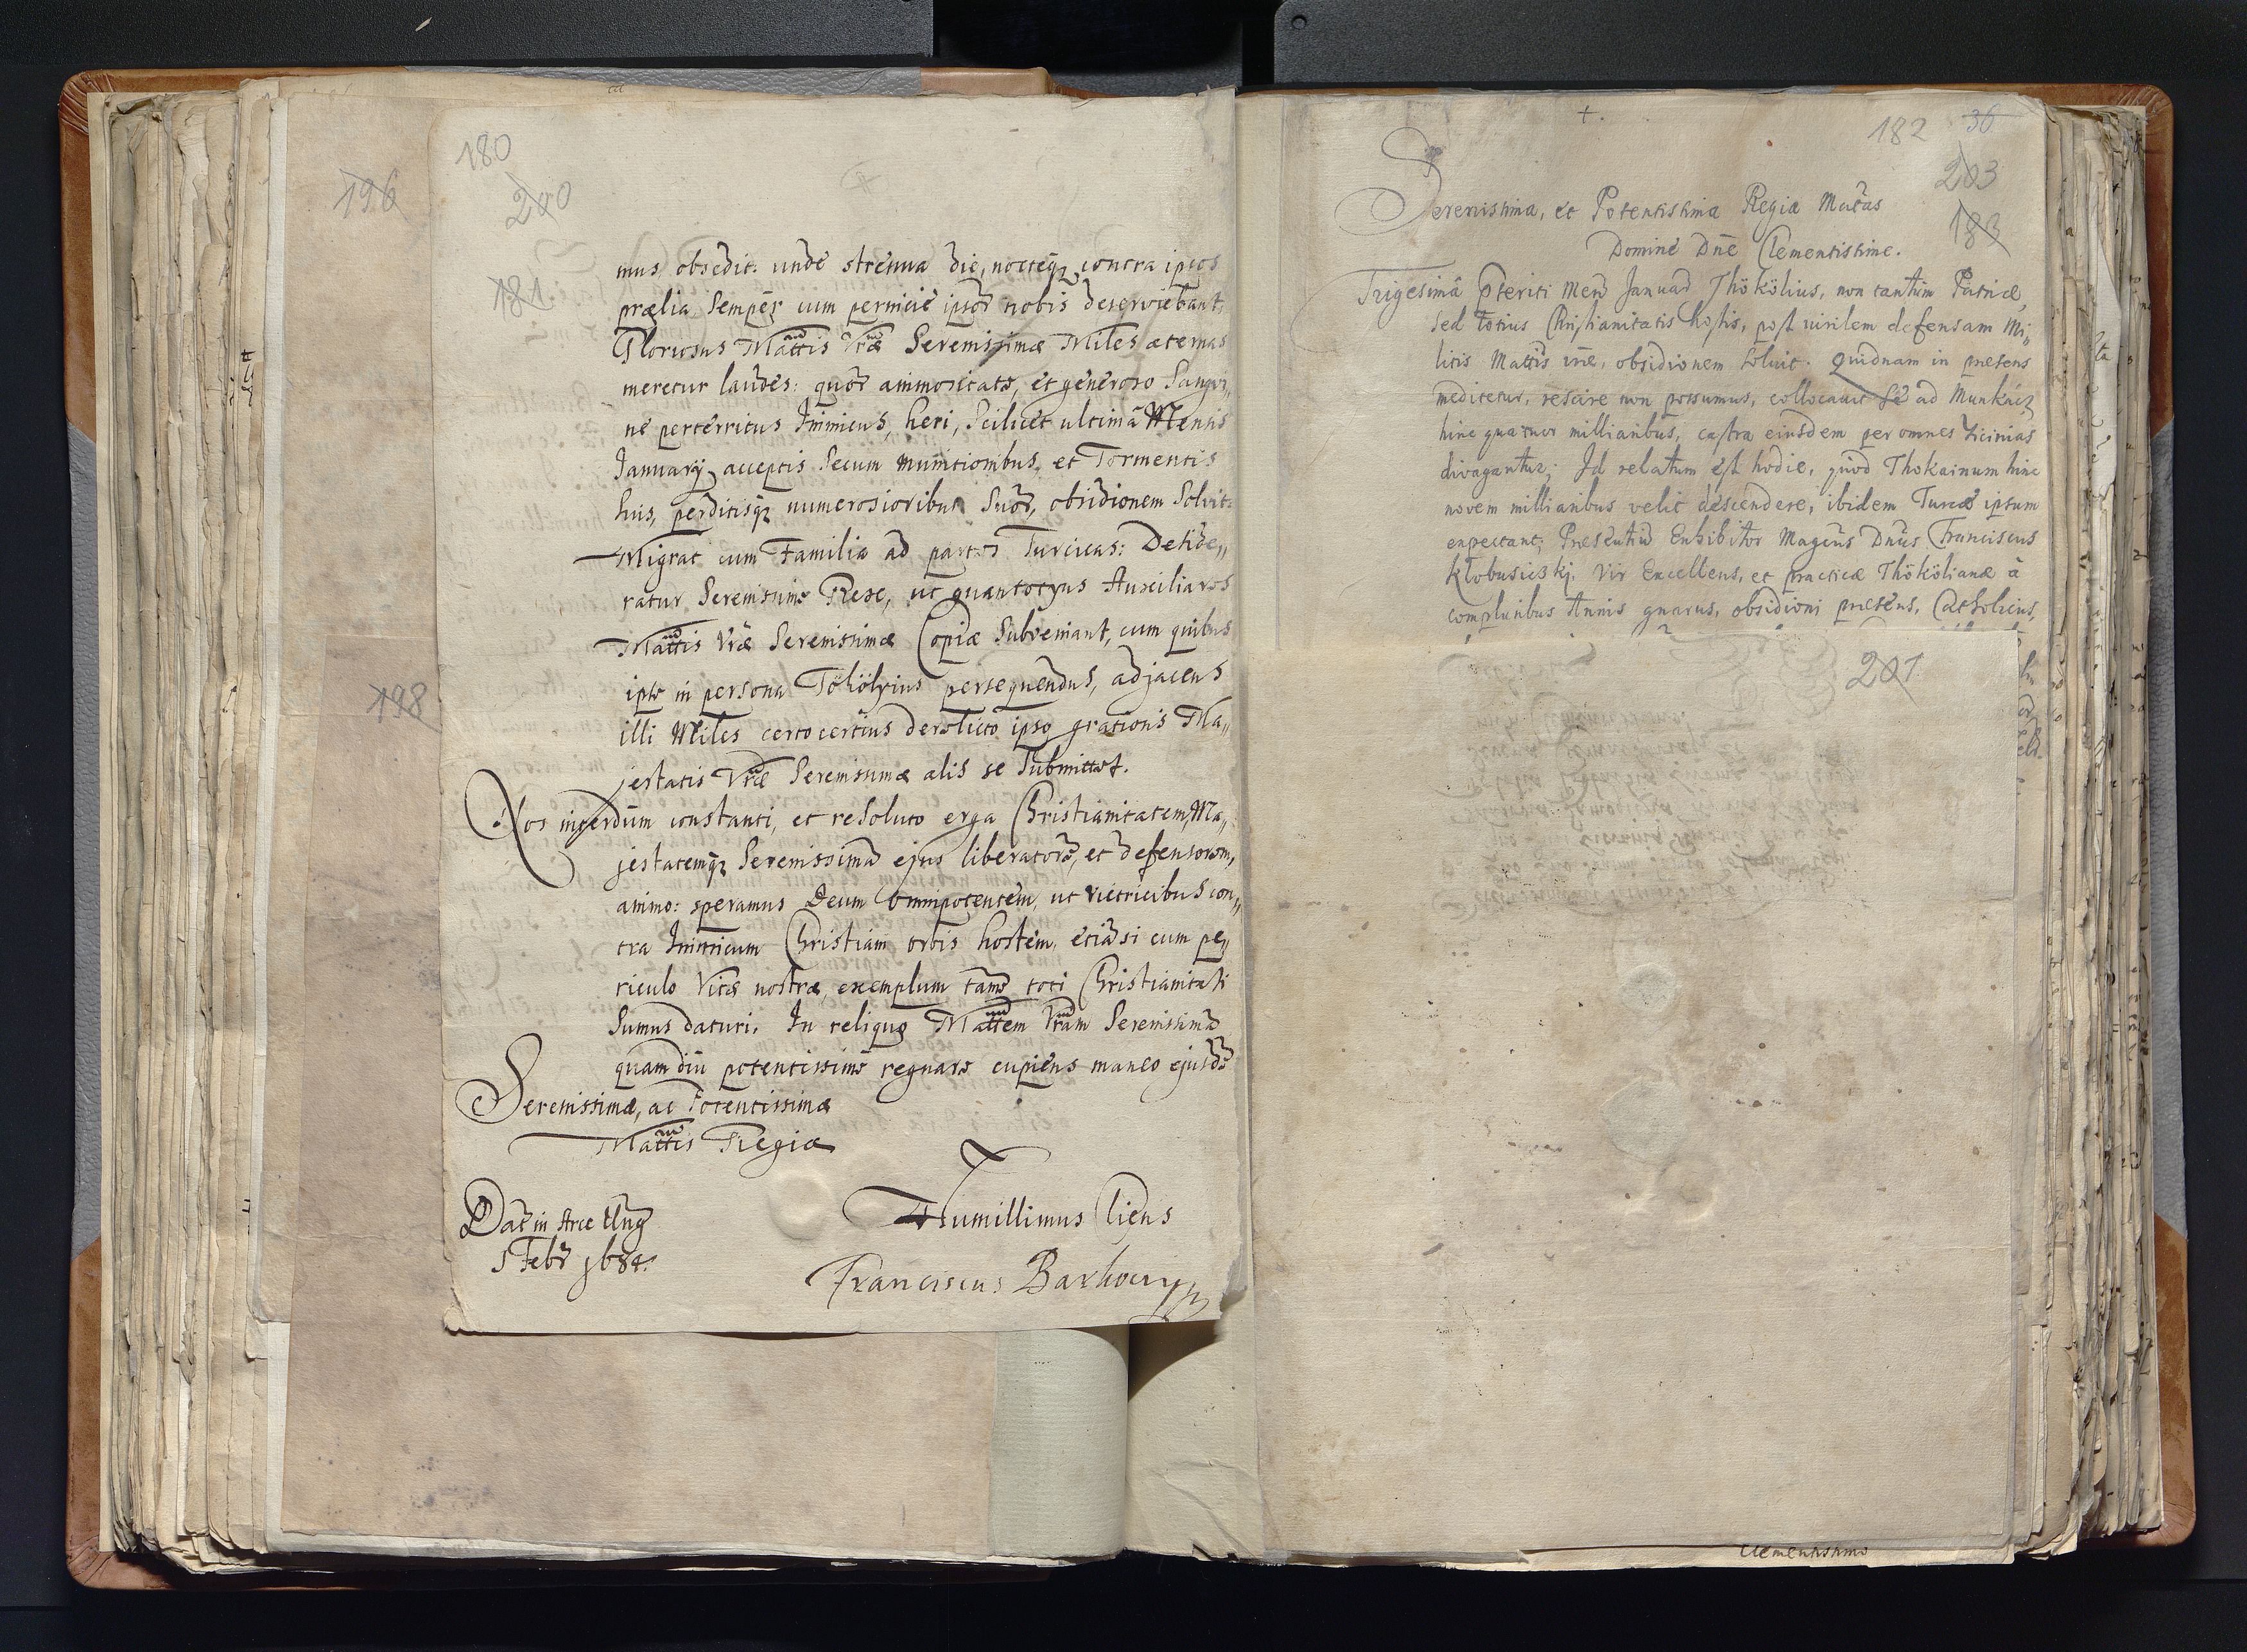 180
200
196
181
198
mus obsedit: unde strenua die, nocteq₃ contra ipsos
prælia semper cum pernicie ipsor̃ nobis deserviebant.
Gloriosus Mattis Vræ Serenissimæ Miles æternas
meretur laudes: quor̃ animositate, et generoso Sangvi„
ne perterritus Inimicus, heri, Scilicet ultimâ Mensis
Januarij acceptis Secum munitionibus et Tormentis
suis, perditisq₃ numerosioribus suor̃, obsidionem Solvit:
Migrat cum Familia ad partes Turcicas: Deside„
ratur Serenissime Rex, ut quantocyus Auxiliares
Mattis Vræ Serenissimæ Copiæ Subveniant, cum quibus
ipse in persona Tököl̃yius persequendus, adjacens
illi Miles certo certius derelicto ipso gratiosis Ma„
jestatis Vræ Serenissimæ alis se submittet.
Nos interdum constanti, et resoluto erga Christianitatem, Ma„
jestatemq₃ Serenissimã ejus liberatorẽ, et defensorem,
animo: speramus Deum Omnipotentem, ut victricibus con„
tra Inimicum Christiani orbis hostem, etiãsi cum pe„
riculo Vitæ nostræ, exemplum tamẽ toti Christianitati
sumus daturi. In reliquo Mattem Vram Serenissimã
quam diu potentissime regnare cupiens maneo ejusdẽ
Serenissimæ, ac Potentissimæ
Mattis Regiæ
Dat̃ in Arce Ung
1 Febr̃ 1684.
Humillimus Cliens
Franciscus Barkoczy
182 36
203
183
Serenissima, et Potentissima Regia Mattas
Domine Dñe Clementissime.
Trigesimâ Pteriti Mens̃ Januar̃ Thökölius, non tantum Patriæ,
sed totius Christianitatis hostis, post virilem defensam Mi„
litis Mattis vræ, obsidionem solvit. Quidnam in presens
meditetur, rescire non possumus, collocavit se ad Munkácz
hinc quatuor milliaribus, castra eiusdem per omnes Vicinias
divagantur; Id relatum est hodie, quod Thokainum hinc
novem milliaribus velit descendere, ibidem Turcæ ipsum
expectant; Presentiũ Exhibitor Magcus Dnus Franciscus
Klobusiczkj. Vir Excellens, et practicæ Thökölianæ à
compluribus Annis gnarus, obsidioni presens, Catholicus,
201
Clementissimo